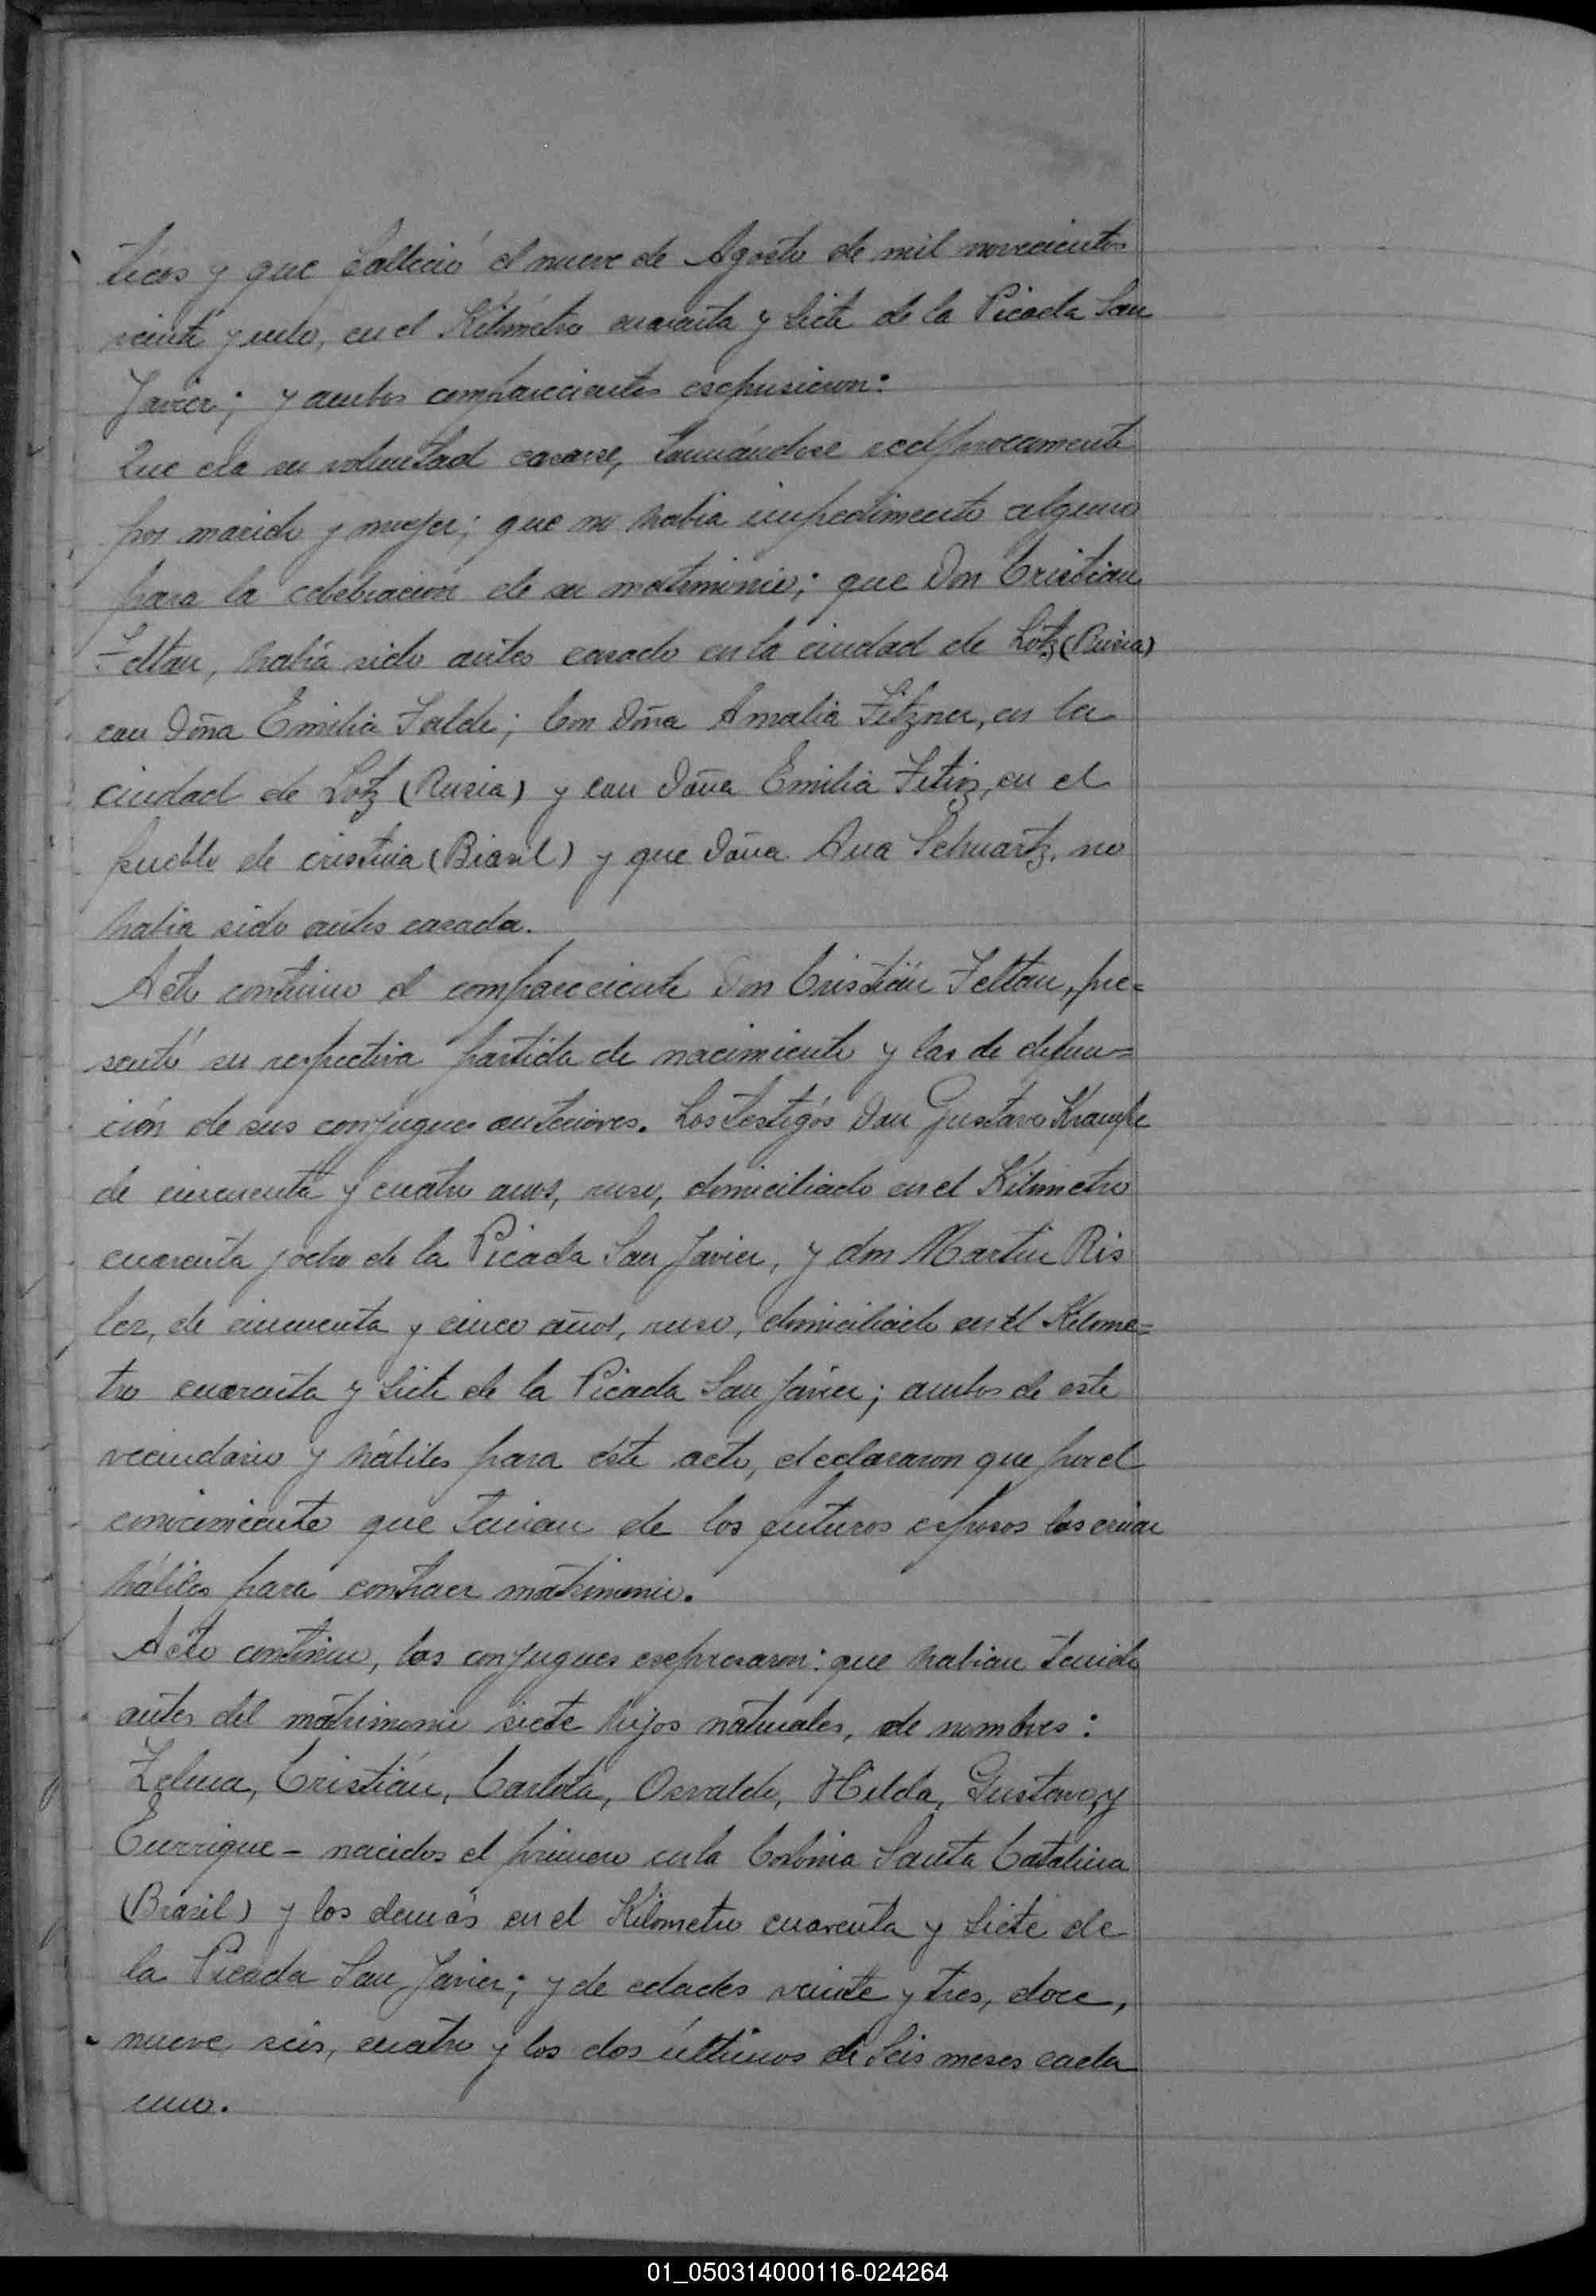 ticos y que falleció el nueve de Agosto de mil novecientos
veinte y uno, en el Kilómetro cuarenta y siete de la Picada San
Javier; y ambos comparecientes esepusieron:
Que era su voluntad casarse, tomándose recíprocamente
por marido y mujer; que no habia impedimento alguno
para la celebración de su matrimonio; que Don Cristian
Feltan, había sido antes casado en la ciudad de Lotz (Rusia)
con Doña Emilia Falde; con Doña Amalia Fitzner, en la
ciudad de Lotz (Rusia) y con Doña Emilia en el
pueblo de cristina (Brasil) y que Doña Ana Schuartz, no
habia sido antes casada.
Acto continuo el compareciente Don Cristián Feltan, pre=
sentó su respectiva partida de nacimiento y las de defun=
ción de sus conjugues anteriores. Los testigos Don Gustavo Krampe
de cincuenta y cuatro anos, ruso, domiciliado en el Kilometro
cuarenta y ocho de la Picada San Javier, y don Martin Ris
ler, de cincuenta y cinco años, ruso, domiciliado en el Kilome=
tro cuarenta y siete de la Picada San Javier; ambos de este
vecindario y hábiles para éste acto, declararon que por el
conocimiento que tenian de los futuros esposos los creian
hábiles para contraer matrimonio.
Acto continuo, los conjugues esepresaron: que habian tenido
antes del matrimonio siete hijos naturales, de nombres:
Zelma, Cristián, Carlota, Osvaldo, Hilda, Gustavo, y
Enrrique - nacidos el primero en la Colonia Santa Catalina
(Brasil) y los demás en el Kilometro cuarenta y siete de
la Picada San Javier; y de edades veinte y tres, doce,
nueve, seis, cuatro y los dos últimos de seis meses cada
uno.
01_050314000116-024264